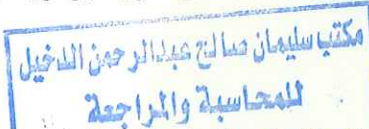 مكتب سليمان صالح عبدالرحمن الدخيل
للمحاسبة والمراجعة